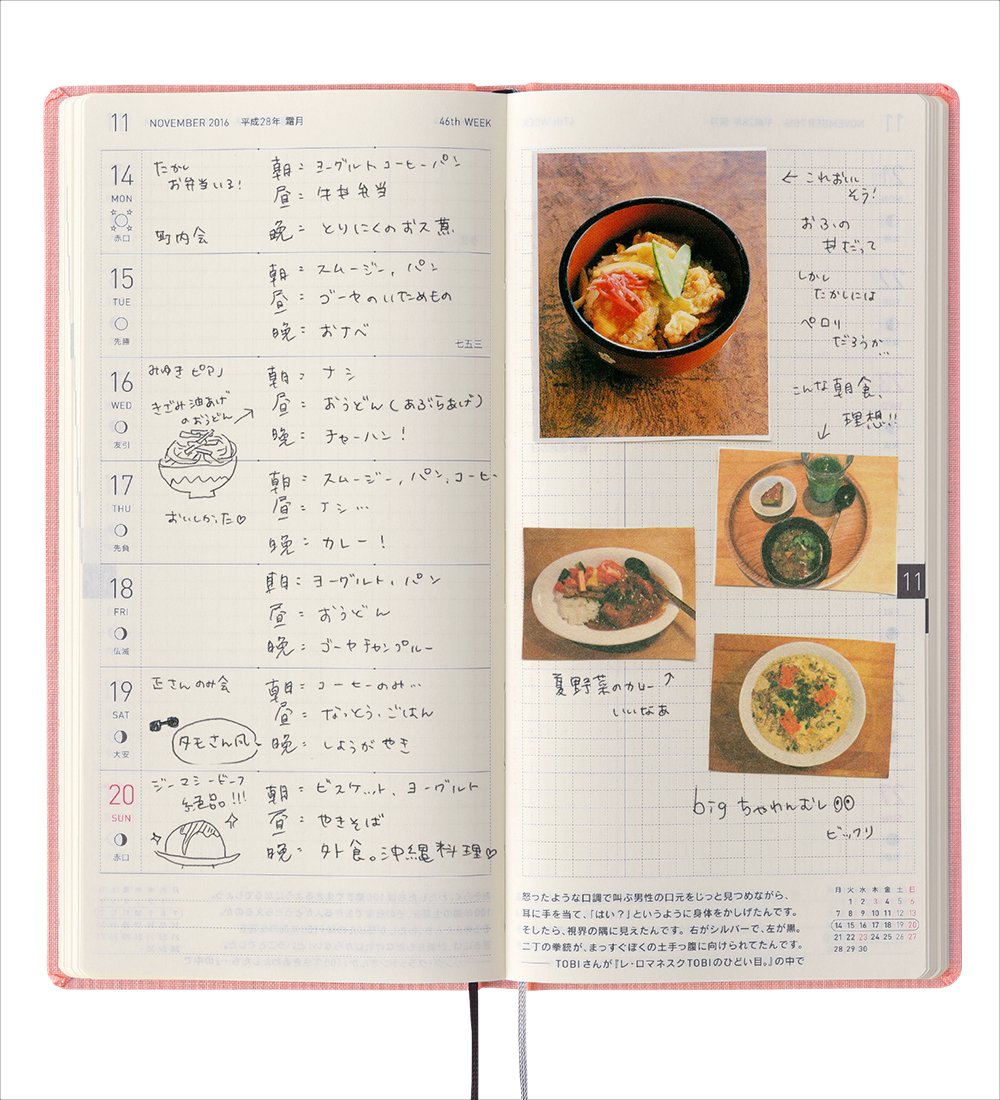 11 NOVEMBER 2016 平成28年 霜月 46th WEEK
14 MON 赤口
たかし
お弁当いる!
町内会
朝: ヨーグルト コーヒー パン
昼: 牛丼弁当
晩: とりにくのお酢煮
15 TUE 先勝
朝: スムージー, パン
昼: ゴーヤのいためもの
晩: おナベ
七五三
16 WED 友引
みゆき ピアノ
きざみ油あげ
のおうどん
朝: ナシ
昼: おうどん(あぶらあげ)
晩: チャーハン!
17 THU 先負
おいしかった♡
朝: スムージー, パン, コーヒー
昼: ナシ…
晩: カレー!
18 FRI 仏滅
朝: ヨーグルト, パン
昼: おうどん
晩: ゴーヤチャンプルー
19 SAT 大安
正さんのみ会
タモさん風
朝: コーヒーのみ…
昼: なっとう、ごはん
晩: しょうがやき
20 SUN 赤口
ジーマシードーフ
絶品!!!
朝: ビスケット、ヨーグルト
昼: やきそば
晩: 外食。沖縄料理♡
← これおいし
そう!
おふの
丼だって
しかし
たかしには
ペロリ
だろうか…
こんな朝食、
理想!!
11
夏野菜のカレー
いいなあ
big ちゃわんむし
ビックリ
怒ったような口調で叫ぶ男性の口元をじっと見つめながら、
耳に手を当て、「はい?」というように身体をかしげたんです。
そしたら、視界の隅に見えたんです。右がシルバーで、左が黒。
二丁の拳銃が、まっすぐぼくの土手っ腹に向けられてたんです。
—— TOBIさんが『レ・ロマネスクTOBIのひどい目。』の中で
月 火 水 木 金 土 日
1 2 3 4 5 6
7 8 9 10 11 12 13
14 15 16 17 18 19 20
21 22 23 24 25 26 27
28 29 30